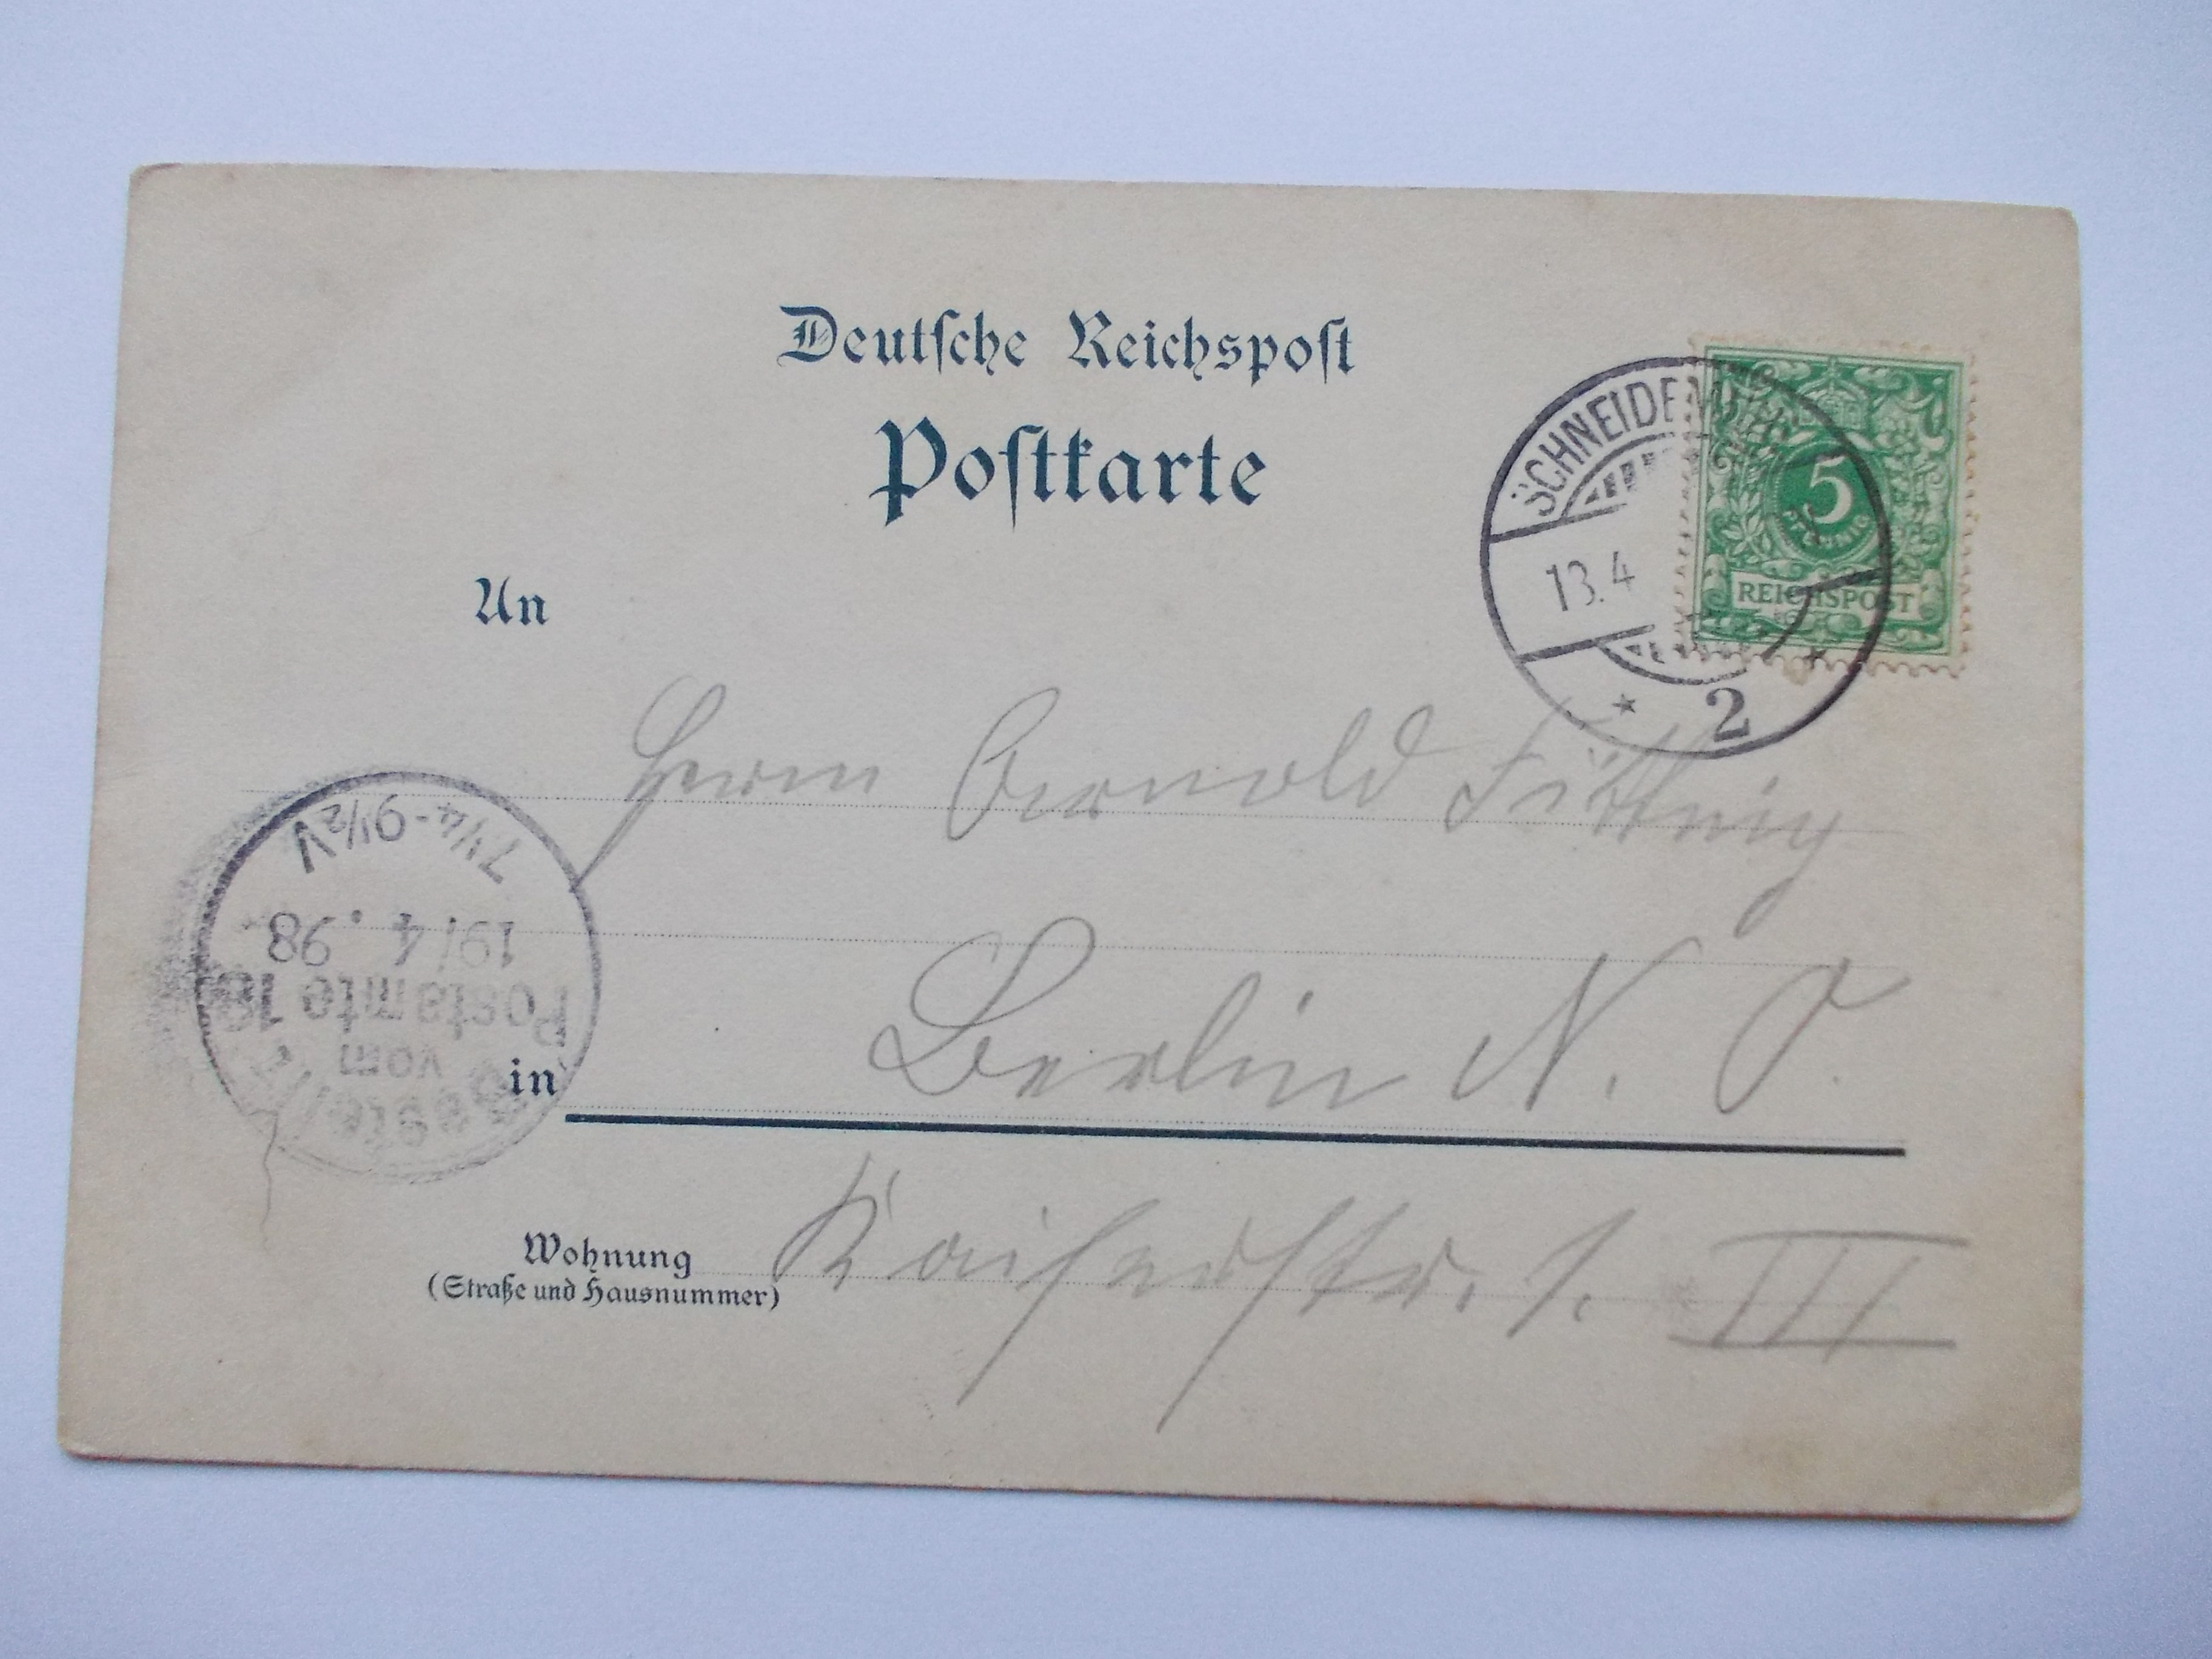 Deutsche Reichspost
Postkarte
SCHNEIDEMÜHL
13.4
* 2 *
5
PFENNIG
REICHSPOST
An
Herrn Arnold
7¼-9½V
19/4.98
Bestellt
vom
Postamte 18
in Berlin N. O.
Wohnung Kaiserstr. 1. III
(Straße und Hausnummer)